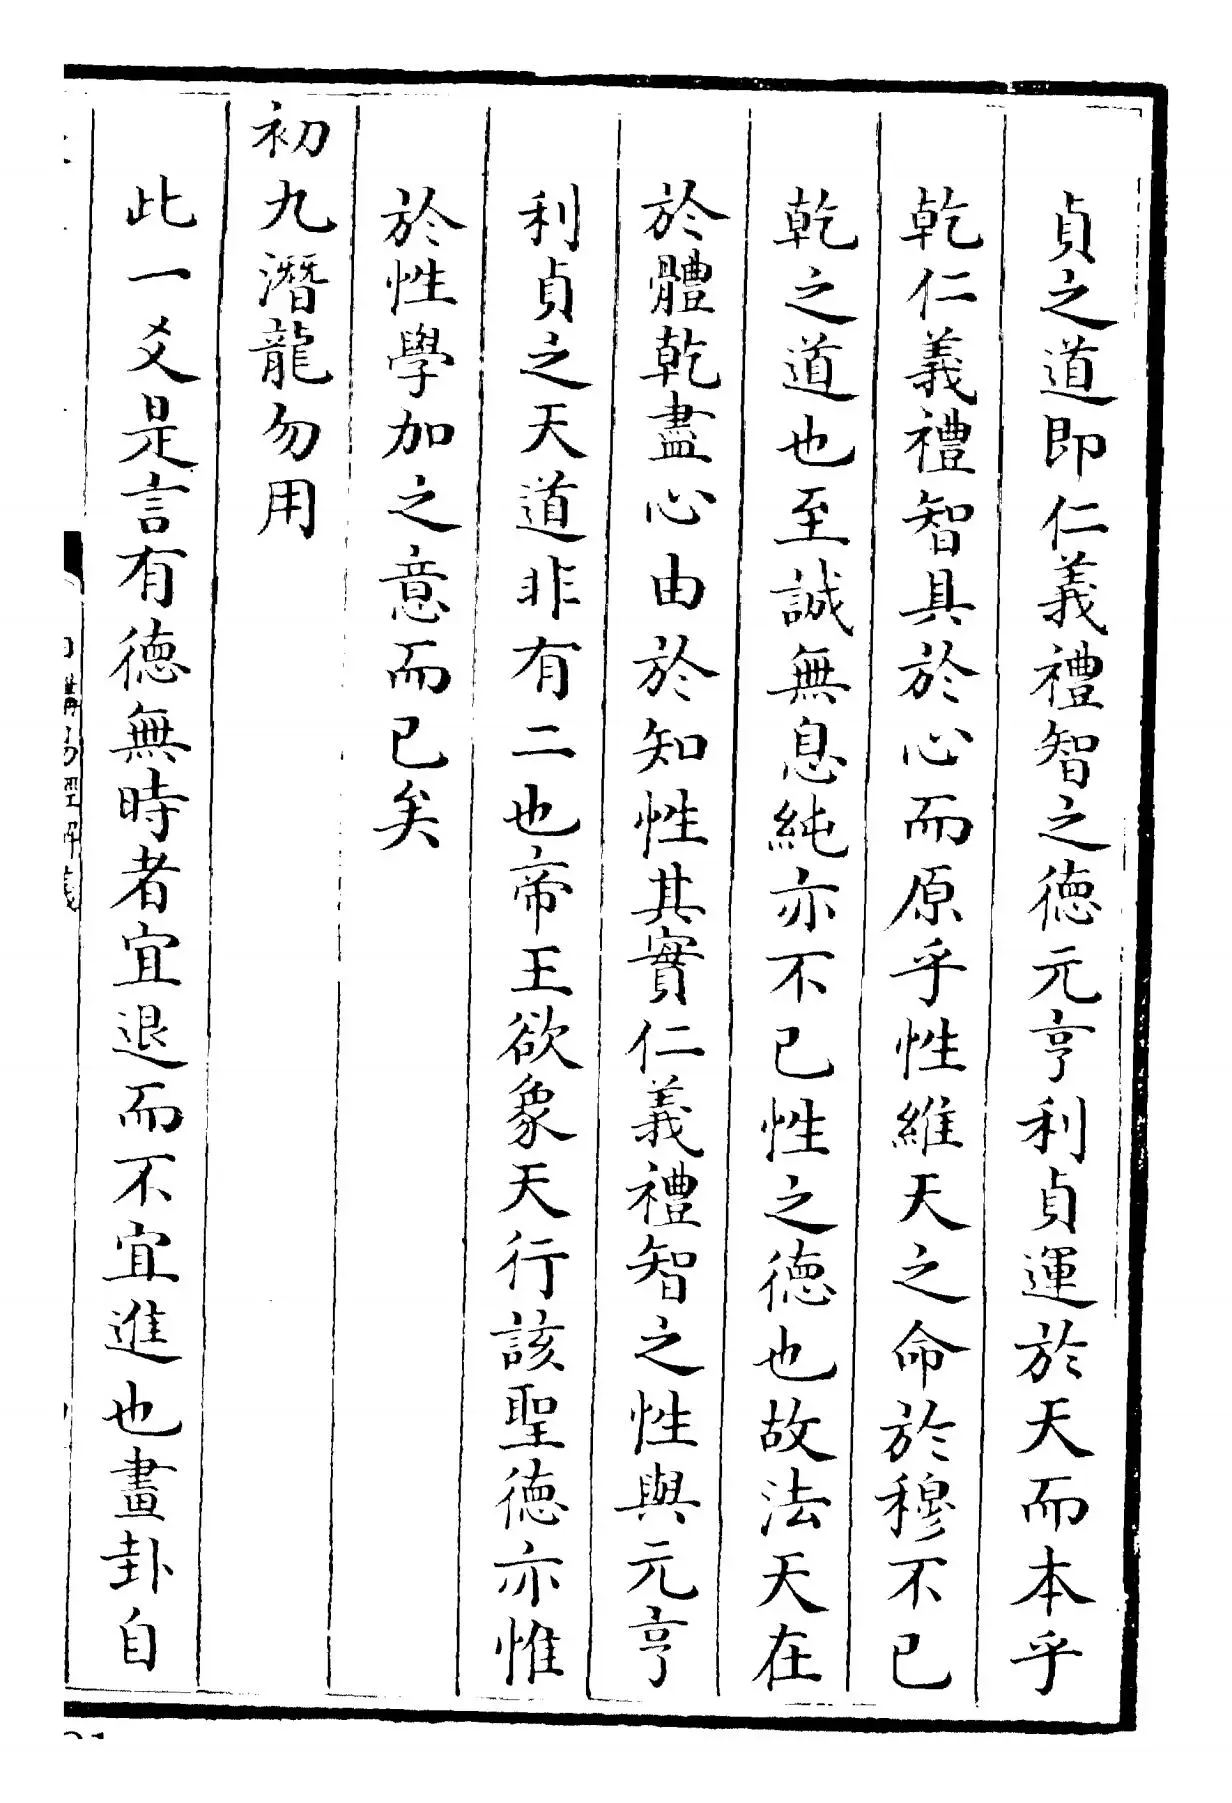 貞之道即仁義禮智之德元亨利貞運於天而本乎
乾仁義禮智具於心而原乎性維天之命於穆不已
乾之道也至誠無息純亦不已性之德也故法天在
於體乾盡心由於知性其實仁義禮智之性與元亨
利貞之天道非有二也帝王欲象天行該聖德亦惟
於性學加之意而已矣
初九潛龍勿用
此一爻是言有德無時者宜退而不宜進也畫卦自
講易經解義